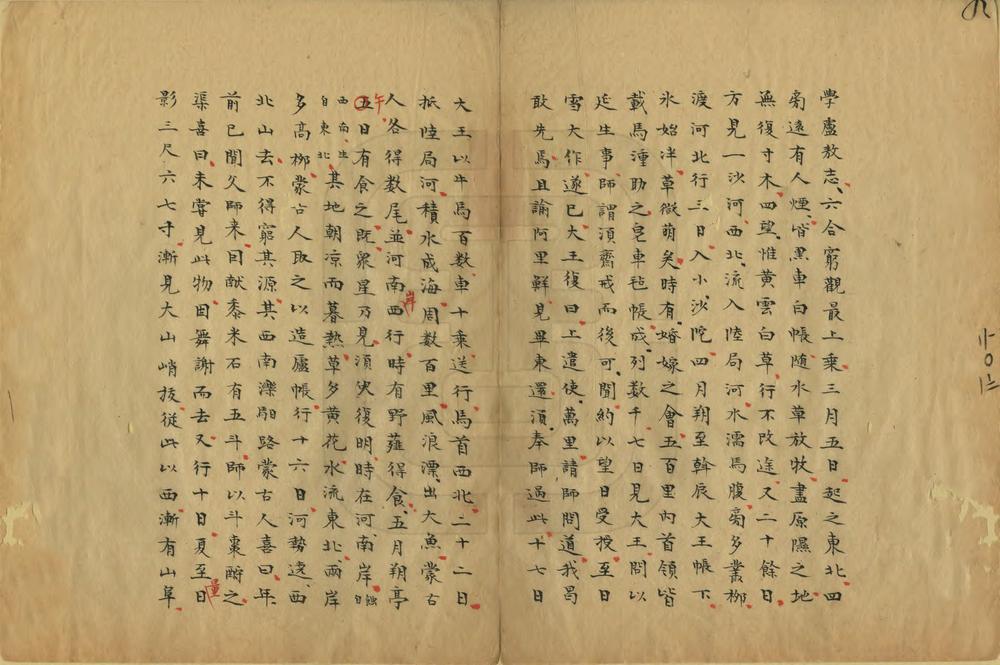 學盧敖志六合窮觀最上乘三月五日起之東北四
旁遠有人煙皆黑車白帳随水草放牧盡原隰之地
無復寸木四望惟黄雲白草行不改途又二十餘日
方見一沙河西北流入陸局河水濡馬腹旁多叢柳
渡河北行三日入小沙陀四月朔至斡辰大王帳下
氷始泮草微萌矣時有婚嫁之會五百里内首領皆
載馬湩助之皂車毡帳成列数千七日見大王問以
延生事師謂須齋戒而後可聞約以望日受授至日
雪大作遂已大王復曰上遣使萬里請師問道我曷
敢先焉且諭阿里鮮見畢東還須奉師過此十七日
大王以牛馬百数車十乘送行馬首西北二十二日
抵陸局河積水成海周数百里風浪漂出大魚蒙古
人各得数尾並河南岸西行時有野薤得食五月朔亭
午
五日有食之既衆星乃見須臾復明時在河南岸日蝕
西南生
自東北其地朝凉而暮熱草多黄花水流東北兩岸
多高柳蒙古人取之以造廬帳行十六日河勢遶西
北山去不得窮其源其西南濼馹路蒙古人喜曰年
前已聞父師来因献黍米石有五斗師以斗棗酧之
渠喜曰未甞見此物因舞謝而去又行十日夏至量日
影三尺六七寸漸見大山峭拔從此以西漸有山阜